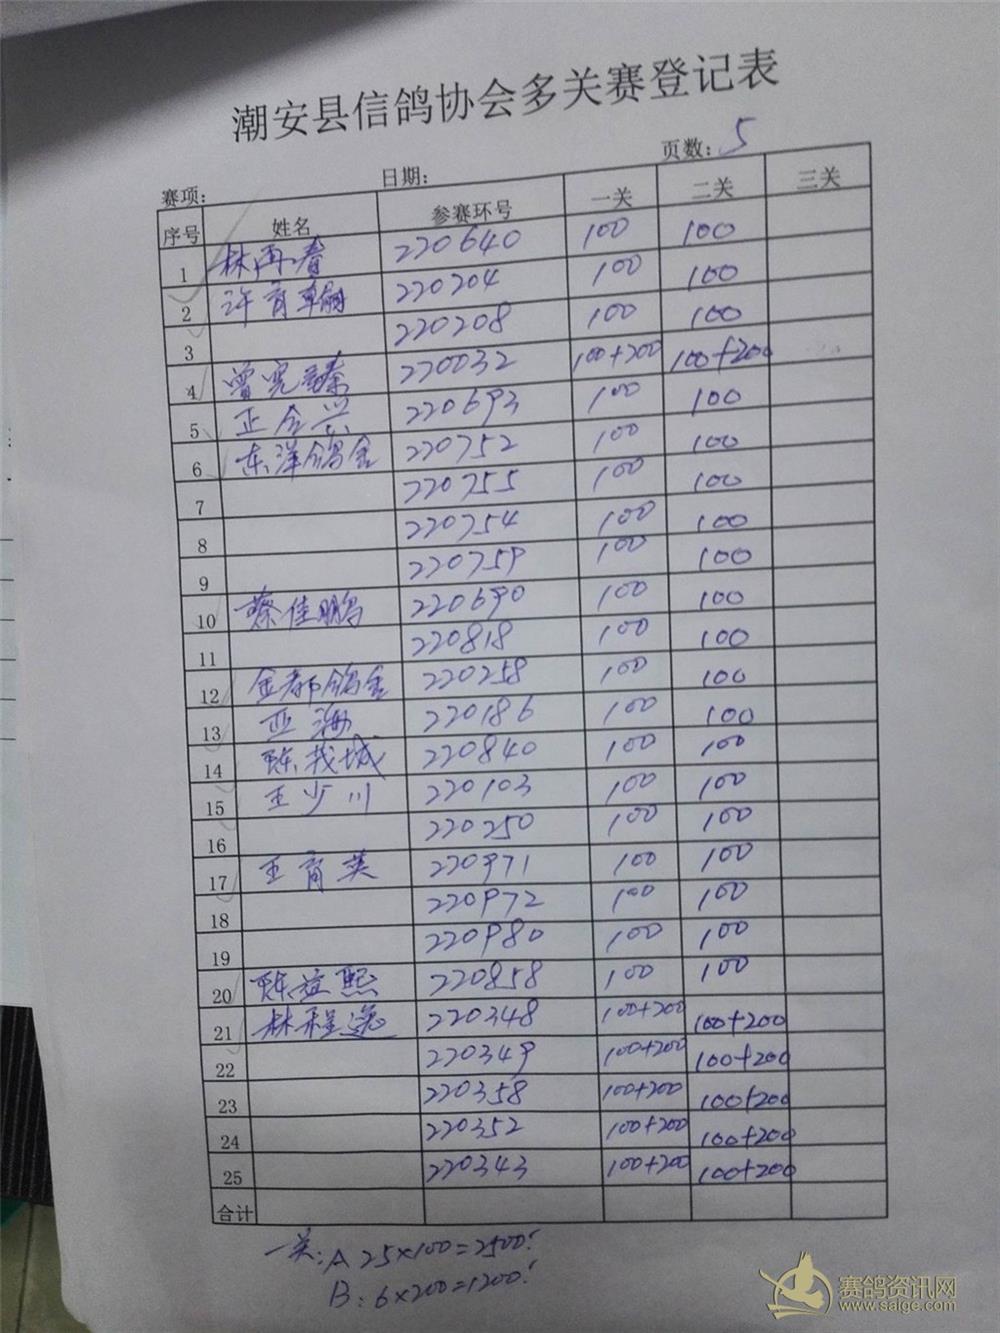 潮安县信鸽协会多关赛登记表
赛项: 日期: 页数: 5
序号 姓名 参赛环号 一关 二关 三关
1 林再春 220640 100 100
2 许育翰 220204 100 100
3 220208 100 100
4 曾宪臻 220032 100+200 100+200
5 正合兴 220693 100 100
6 东洋鸽舍 220752 100 100
7 220755 100 100
8 220754 100 100
9 220759 100 100
10 蔡佳鹏 220690 100 100
11 220818 100 100
12 金都鸽舍 220258 100 100
13 亚海 220186 100 100
14 陈找城 220840 100 100
15 王少川 220103 100 100
16 220250 100 100
17 王育英 220971 100 100
18 220972 100 100
19 220980 100 100
20 陈益熙 220858 100 100
21 林程逸 220348 100+200 100+200
22 220349 100+200 100+200
23 220358 100+200 100+200
24 220352 100+200 100+200
25 220343 100+200 100+200
合计
一关: A 25×100=2500!
B: 6×200=1200!
赛鸽资讯网
www.saige.com